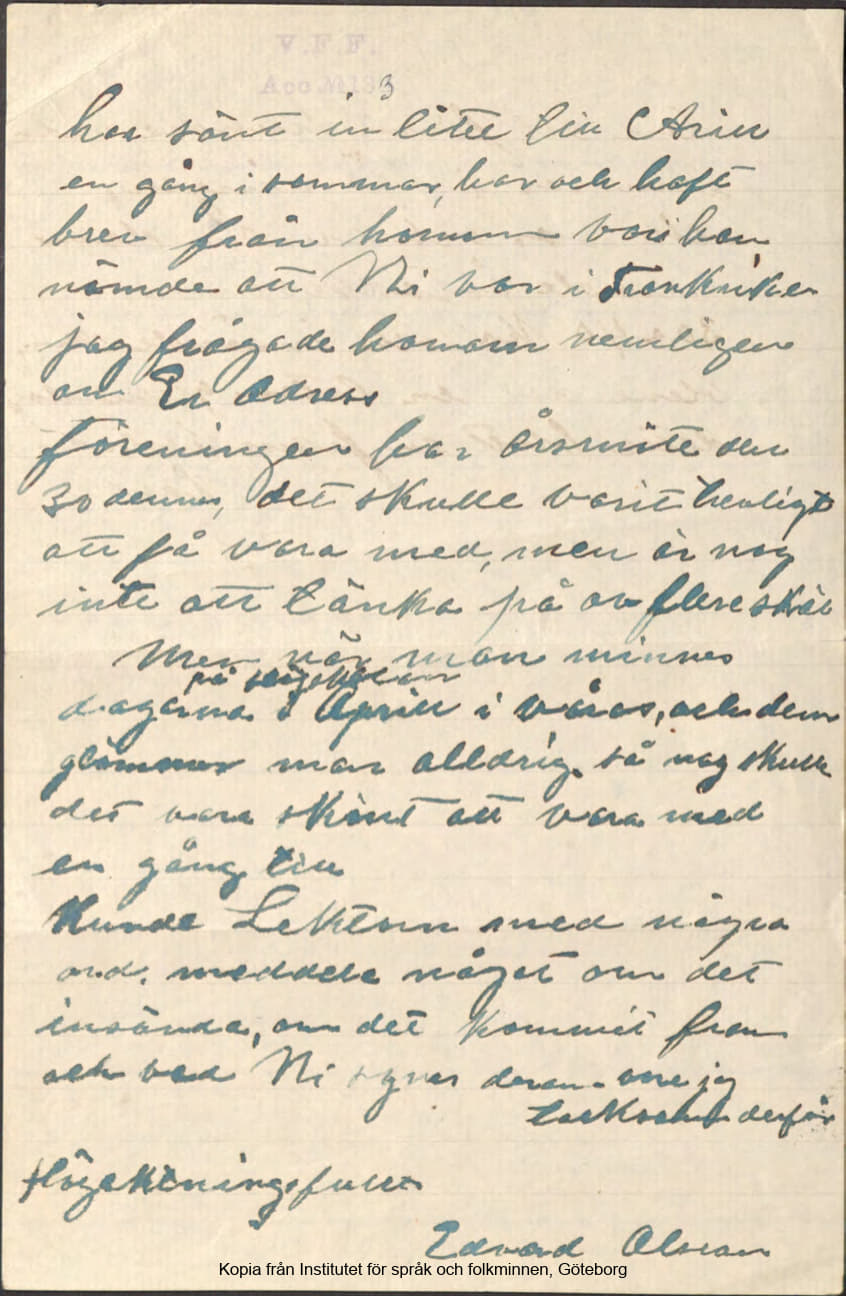 V.F.F.
Acc.M.13
3
har sönt in litet till Arill
en gång i sommar, har och haft
brev från honom vori han
nämde att Ni var i Frankrike
jag frågade honom nemligen
om Er Adress
föreningen har Årsmöte den
30 dennes, det skulle varit trevligt
att få vara med, men är nog
inte att tänka på av flere skäl
Men när man minnes
på
dagarna i April i våras, och dem
glömmer man alldrig, så nog skulle
det vara skönt att vara med
en gång till
Kunde Lektorn med några
ord, meddela något om det
insända, om det kommit fram
och vad Ni synes derom vore jag
tacksam derför
Högaktningsfullt
Edvard Olsson
Kopia från Institutet för språk och folkminnen, Göteborg